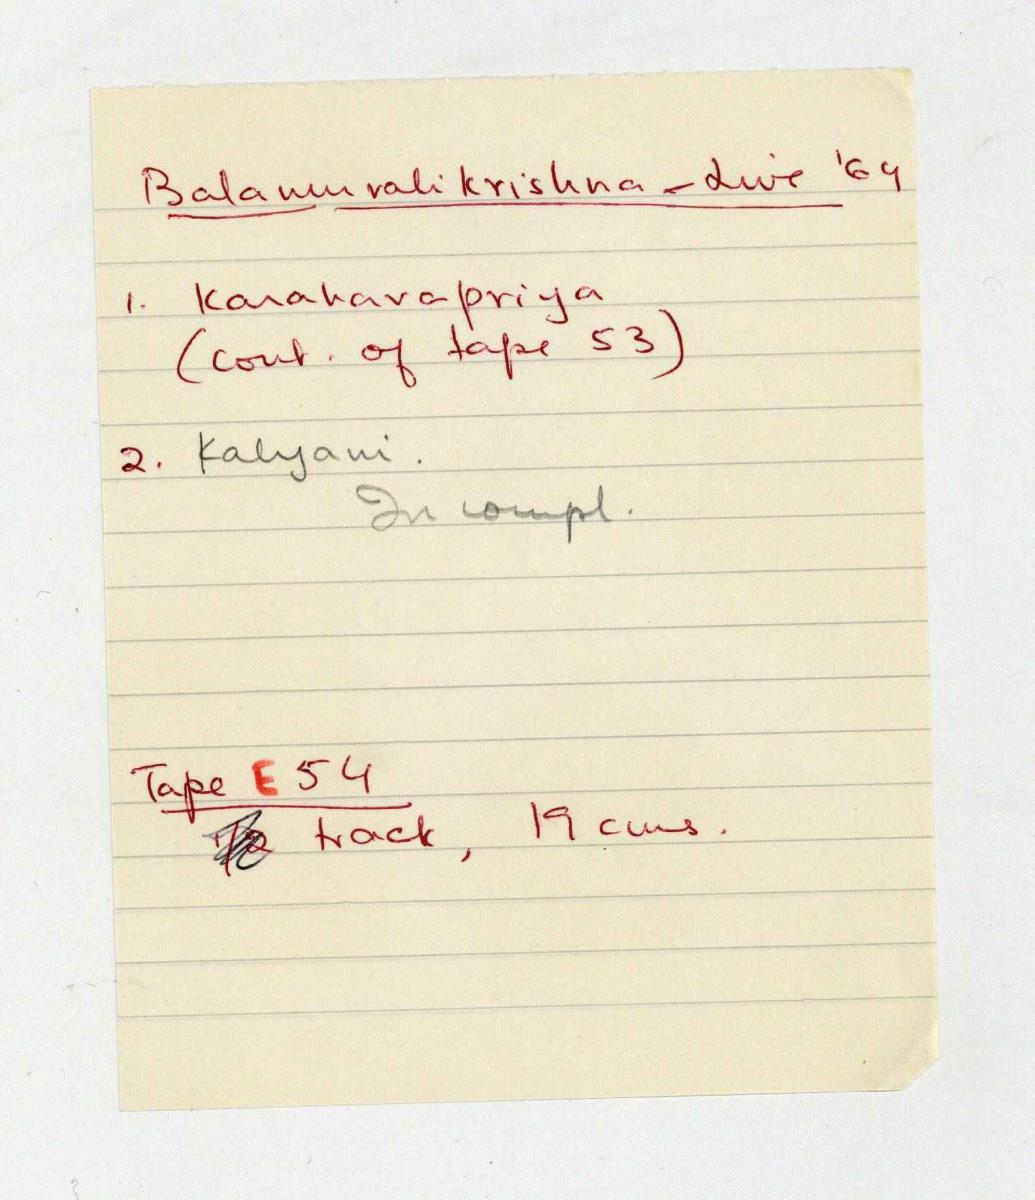 Balamuralikrishna – Live '64
1. Karaharapriya
(cont. of tape 53)
2. Kalyani.
Incompl.
Tape E 54
track, 19 cms.